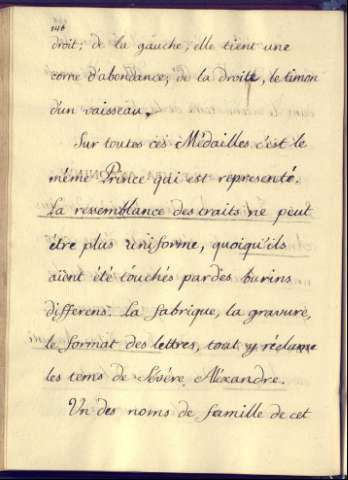 146
droit; de la gauche, elle tient une
corne d'abondance, de la droite, le timon
d'un vaisseau.
Sur toutes ces Médailles c'est le
même Prince qui est representé.
La ressemblance des traits ne peut
être plus uniforme, quoiqu'ils
aïent été touchés par des burins
differens. La fabrique, la gravure,
le format des lettres, tout y réclame
les tems de Sévére Aléxandre.
Un des noms de famille de cet